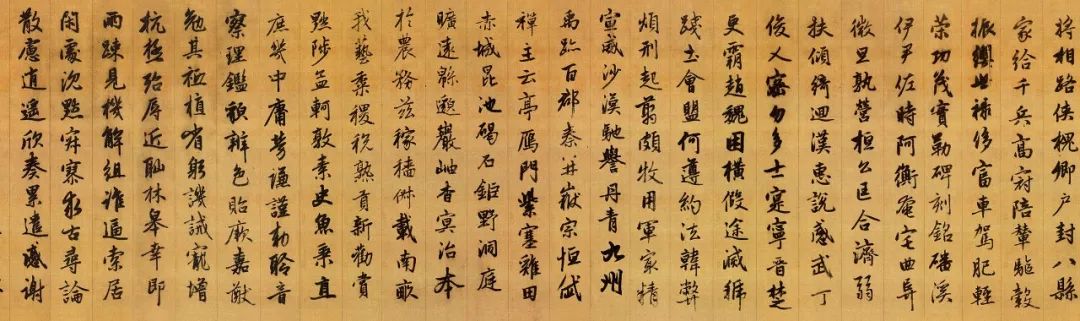 將相路俠槐卿户封八縣
家給千兵高冠陪輦驅轂
振纓世祿侈富車駕肥輕
策功茂實勒碑刻銘磻溪
伊尹佐時阿衡奄宅曲阜
微旦孰營桓公匡合濟弱
扶傾綺迴漢惠說感武丁
俊乂密勿多士寔寧晉楚
更霸趙魏困橫假途滅虢
踐土會盟何遵約法韓弊
煩刑起翦頗牧用軍最精
宣威沙漠馳譽丹青九州
禹跡百郡秦并嶽宗恒岱
禪主云亭鴈門紫塞雞田
赤城昆池碣石鉅野洞庭
曠遠緜邈巖岫杳冥治本
於農務茲稼穡俶載南畝
我藝黍稷稅熟貢新勸賞
黜陟孟軻敦素史魚秉直
庶幾中庸勞謙謹勑聆音
察理鑑貌辨色貽厥嘉猷
勉其祗植省躬譏誡寵增
抗極殆辱近恥林皋幸即
兩疎見機解組誰逼索居
閑處沉默寂寥求古尋論
散慮逍遙欣奏累遣慼謝